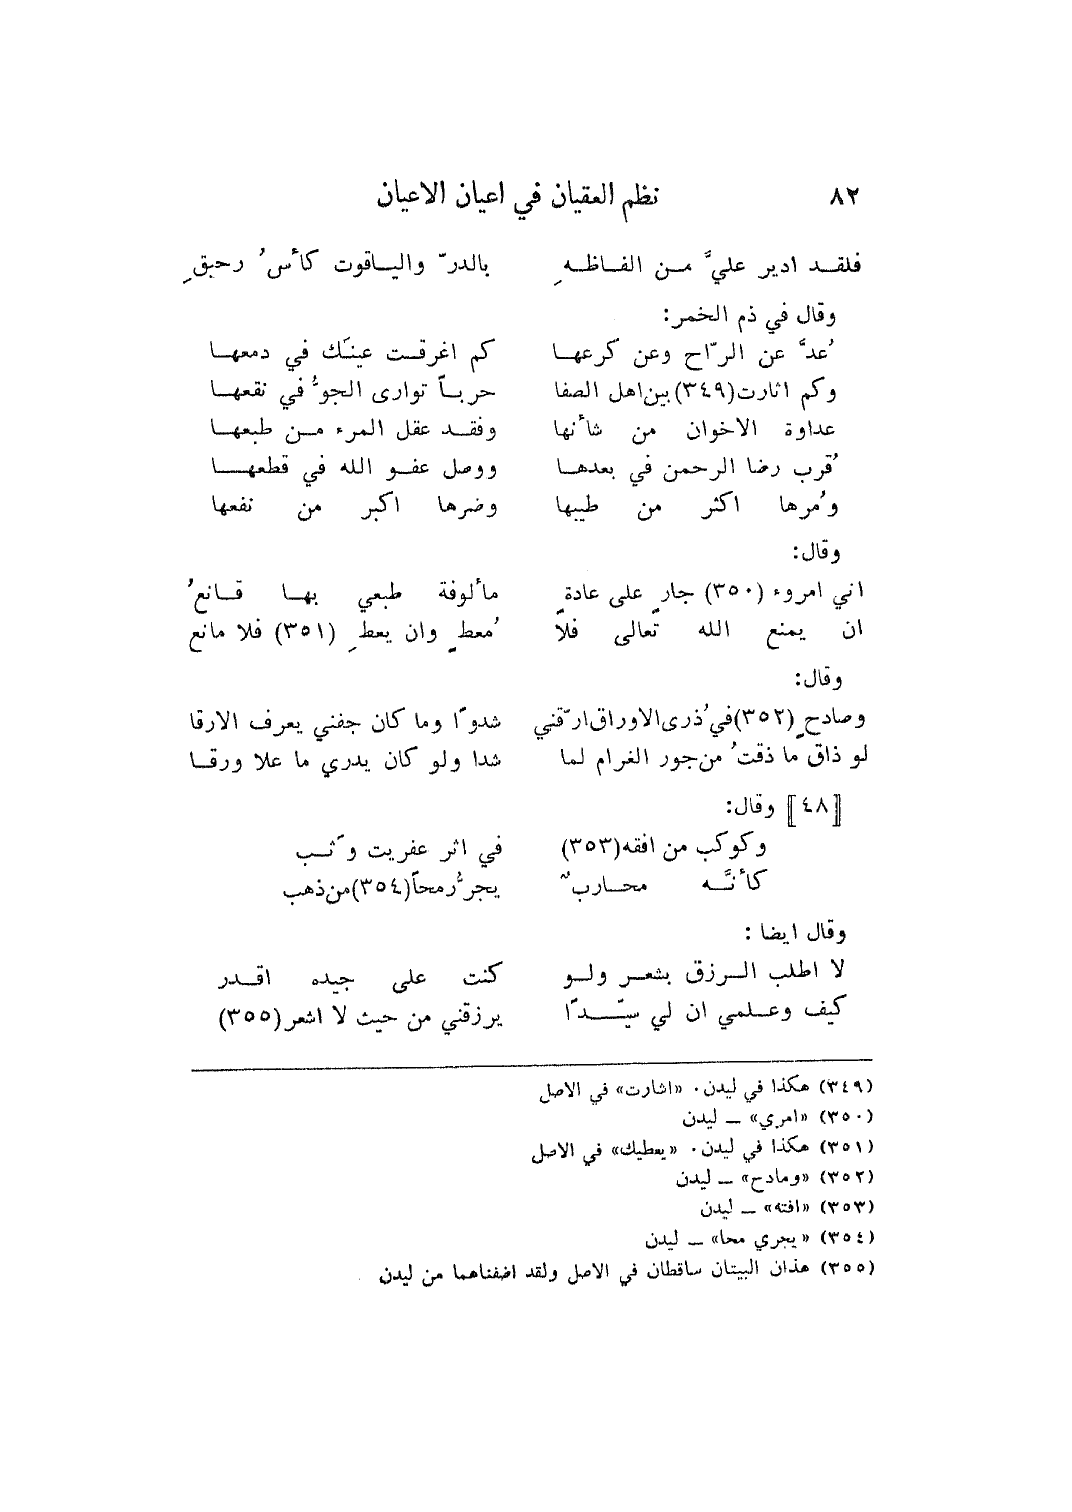 ٨٢ نظم العقيان في اعيان الاعيان
فلقد ادير عليَّ من الفاظهِ بالدرّ والياقوت كأسُ رحيقِ
وقال في ذم الخمر:
عُدَّ عن الرّاح وعن كرعها كم اغرقت عينَك في دمعها
وكم اثارت(٣٤٩)بين اهل الصفا حرباً توارى الجوُّ في نقعها
عداوة الاخوان من شأنها وفقد عقل المرء من طبعها
قُرب رضا الرحمن في بعدها ووصل عفو الله في قطعها
ومُرها اكثر من طيبها وضرها اكبر من نفعها
وقال:
اني امروء (٣٥٠) جارٍ على عادةٍ مألوفة طبعي بها قانعُ
ان يمنع الله تعالى فلا مُعطٍ وان يعطِ (٣٥١) فلا مانع
وقال:
وصادحٍ(٣٥٢)في ذُرى الاوراق ارّقني شدوًا وما كان جفني يعرف الارقا
لو ذاق ما ذقتُ من جور الغرام لما شدا ولو كان يدري ما علا ورقا
[٤٨] وقال:
وكوكب من افقه(٣٥٣) في اثر عفريت وَثب
كأنَّه محاربٌ يجرُّ رمحاً(٣٥٤)من ذهب
وقال ايضا :
لا اطلب الرزق بشعر ولو كنت على جيده اقدر
كيف وعلمي ان لي سيّدًا يرزقني من حيث لا اشعر(٣٥٥)
(٣٤٩) هكذا في ليدن. «اشارت» في الاصل
(٣٥٠) «امري» ــ ليدن
(٣٥١) هكذا في ليدن. «يعطيك» في الاصل
(٣٥٢) «ومادح» ــ ليدن
(٣٥٣) «افته» ــ ليدن
(٣٥٤) «يجري محا» ــ ليدن
(٣٥٥) هذان البيتان ساقطان في الاصل ولقد اضفناهما من ليدن